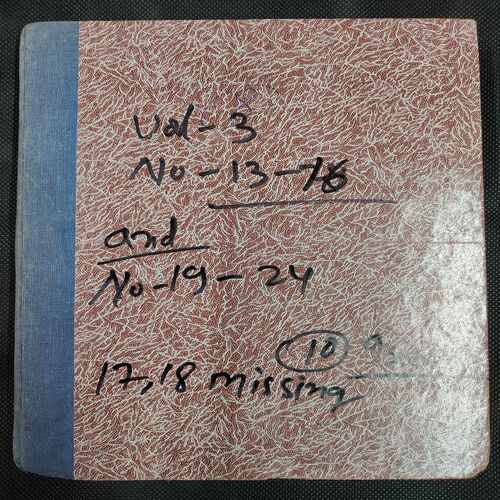 Vol-3
No-13-16
and
No-19-24
10
17,18 missing